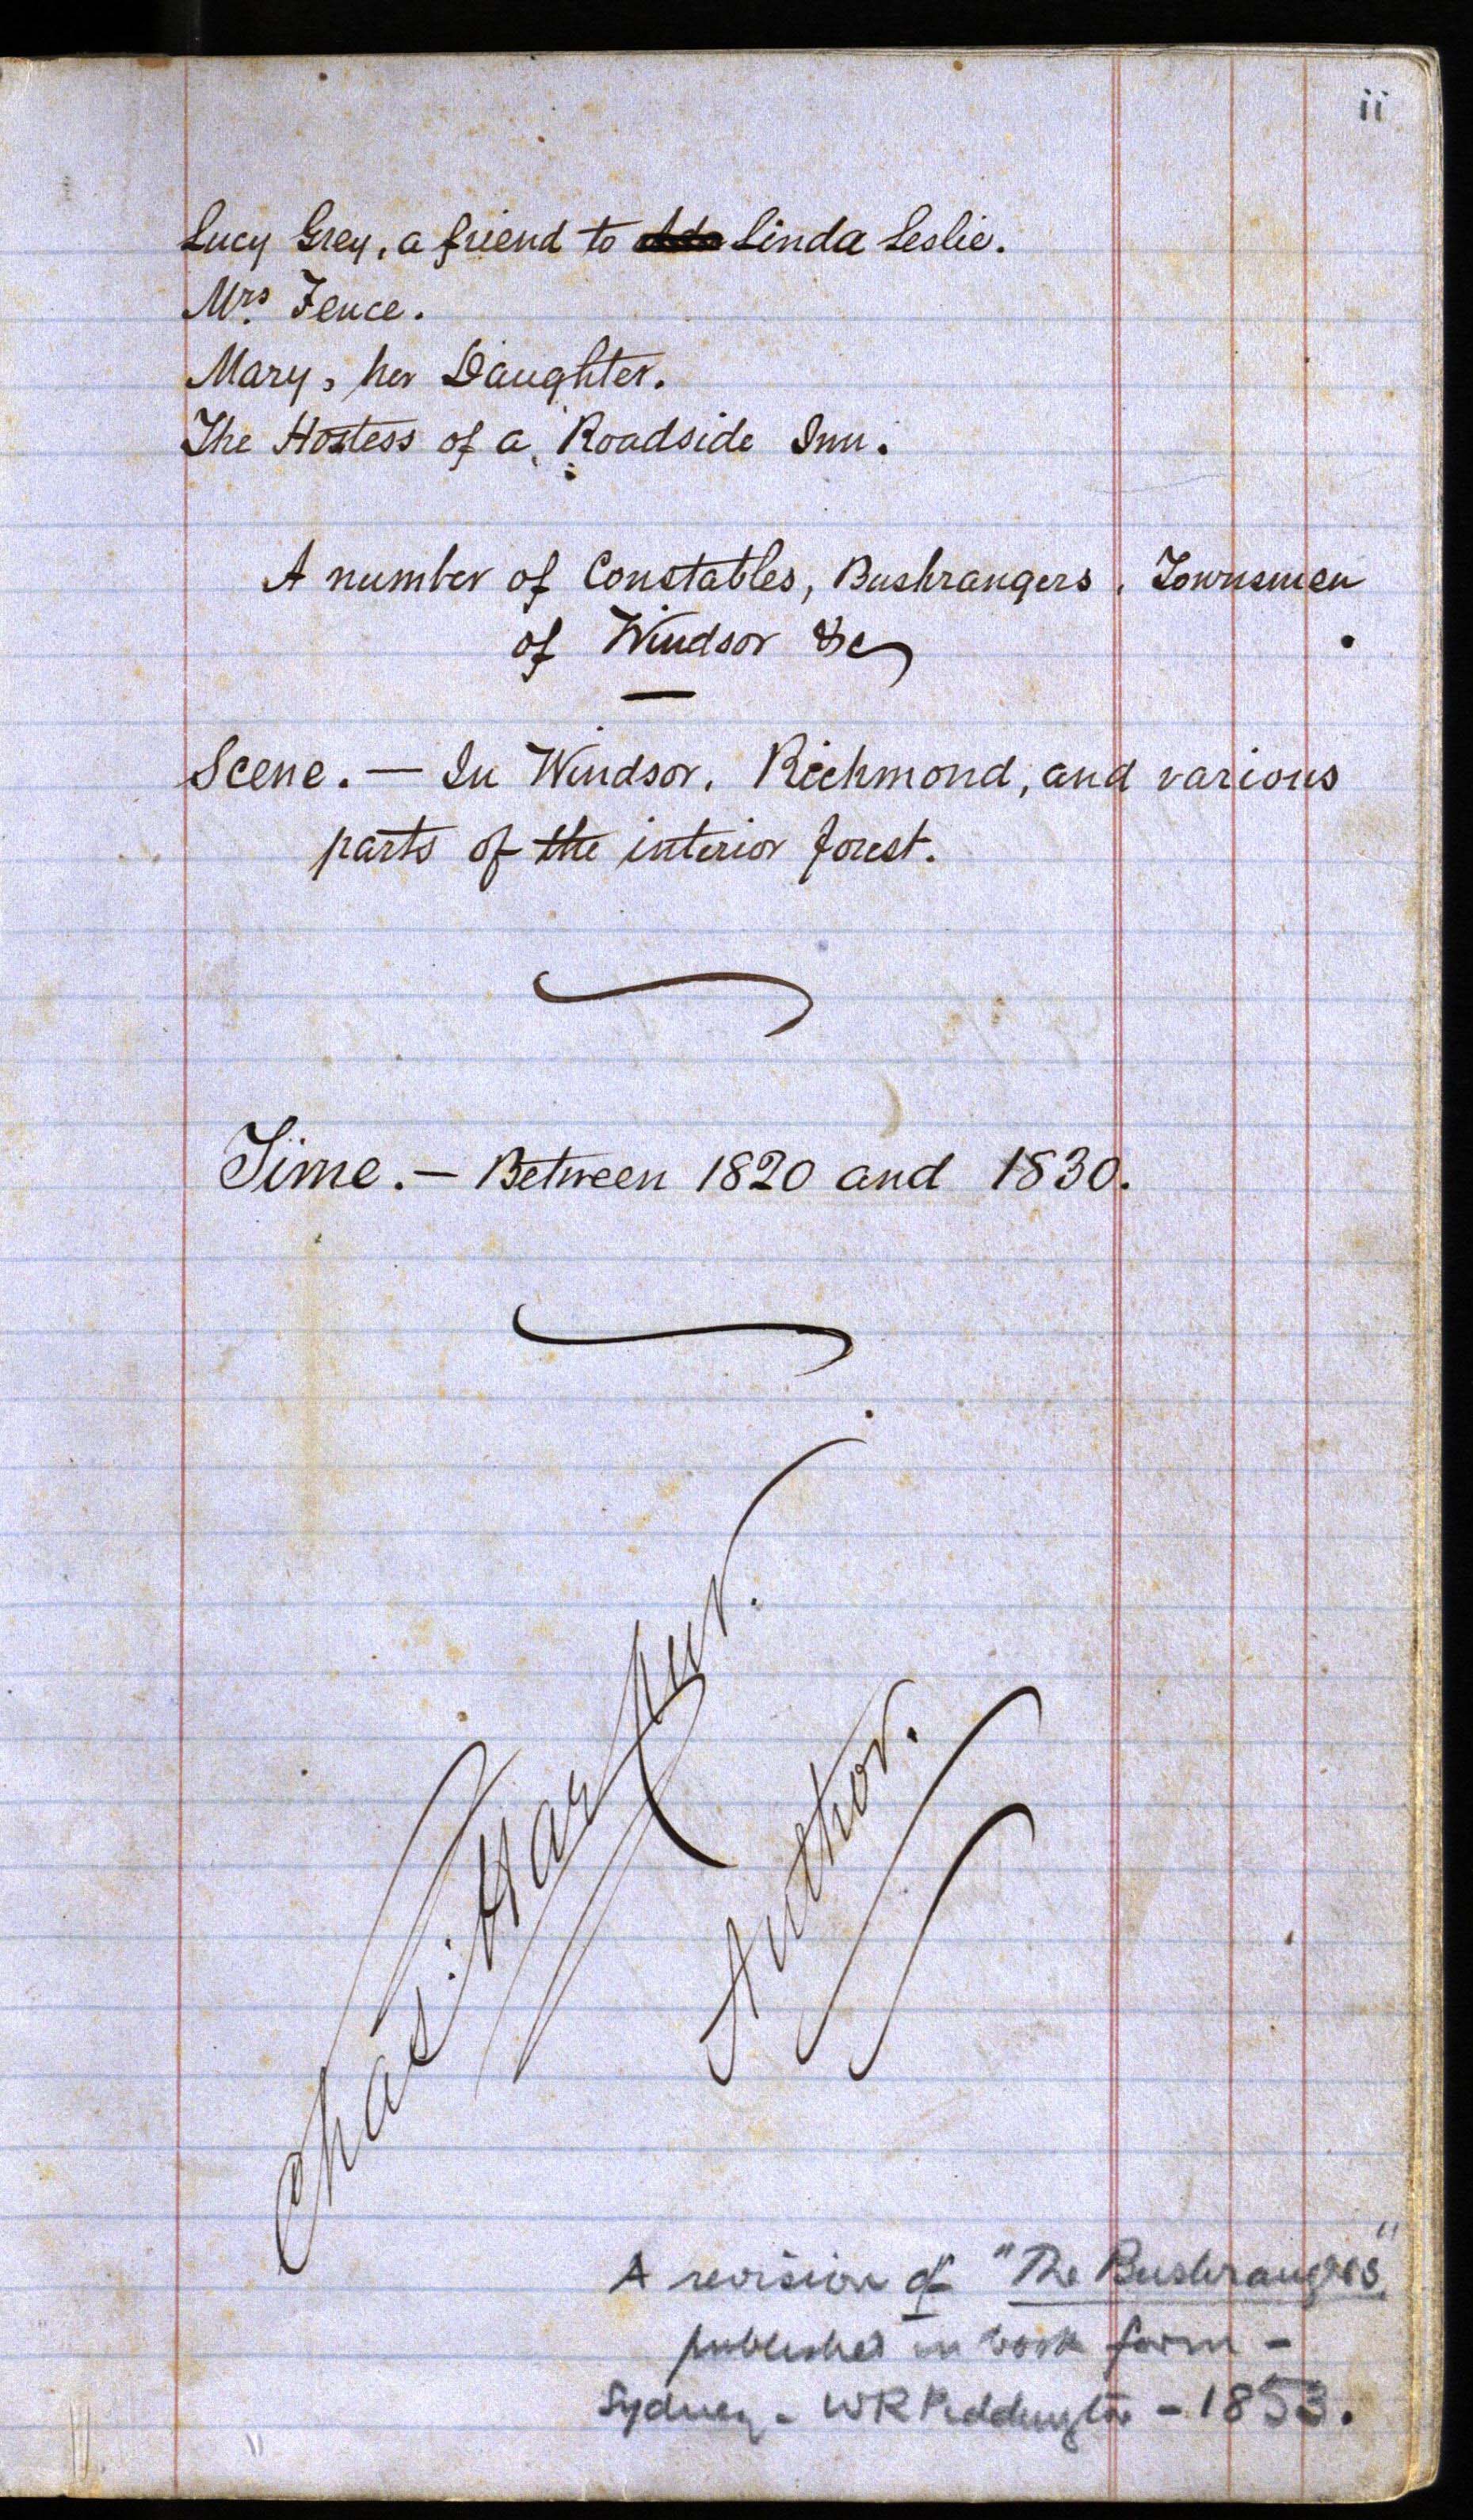 ii
Lucy Grey, a friend to Linda Leslie.
Mrs. Fence.
Mary, her Daughter.
The Hostess of a Roadside Inn.
A number of Constables, Bushrangers, Townsmen
of Windsor &c
Scene. — In Windsor, Richmond, and various
parts of the interior forest.
Time. — Between 1820 and 1830.
Chas: Harpur.
Author.
A revision of "The Bushrangers"
published in book form –
Sydney – WR Piddington – 1853.